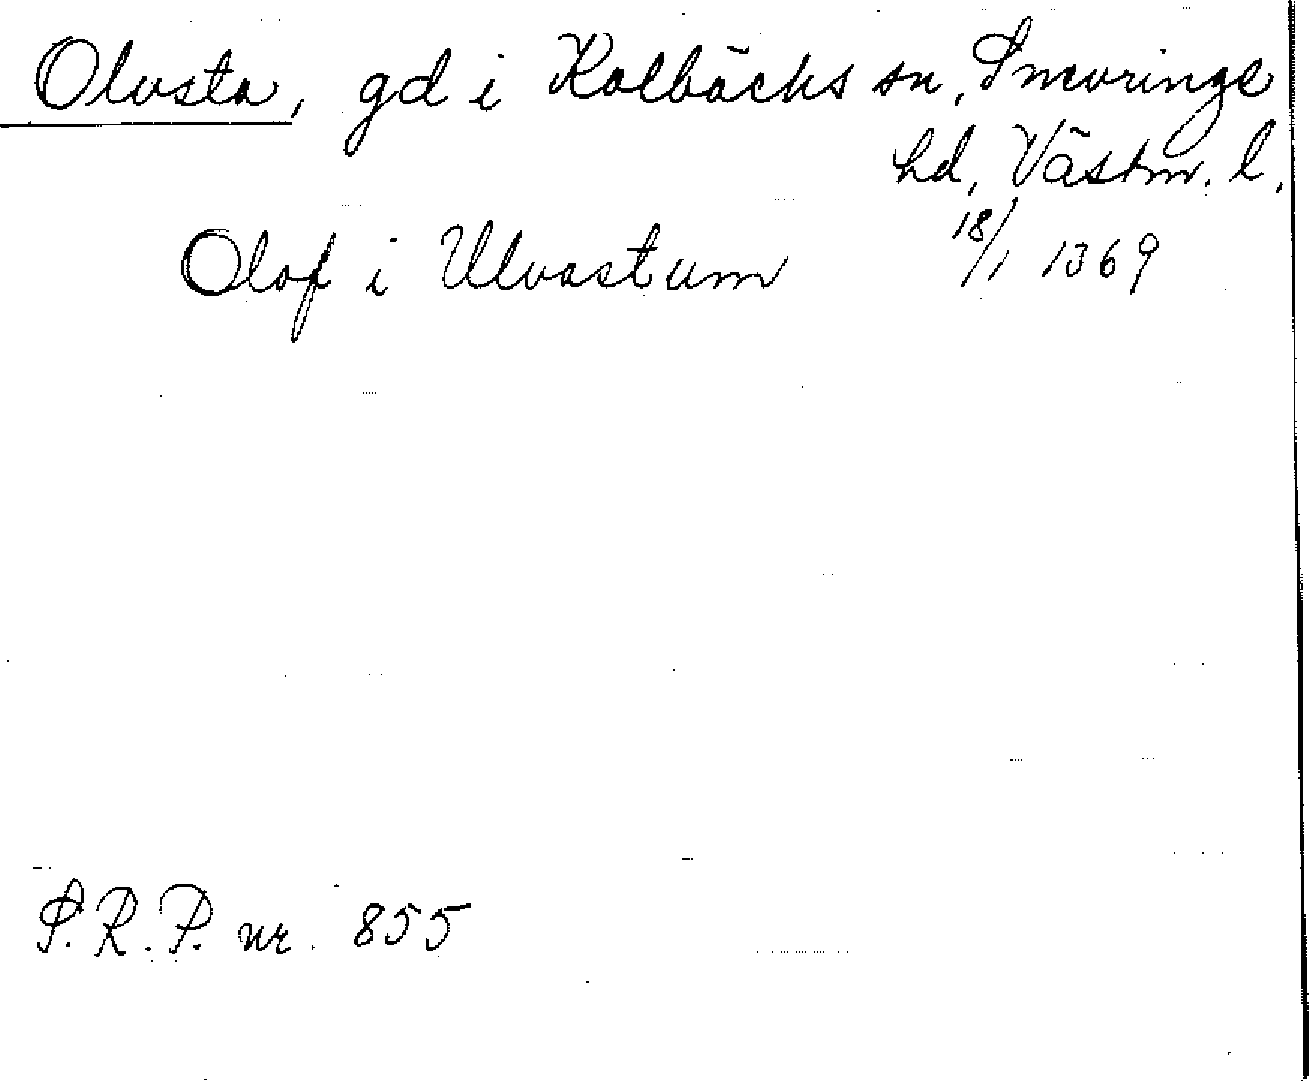 Olvsta, gd i Kolbäcks sn, Snevringe
hd, Västm. l.
Olof i Ulvastum 18/1 1369
S.R.P. nr. 855